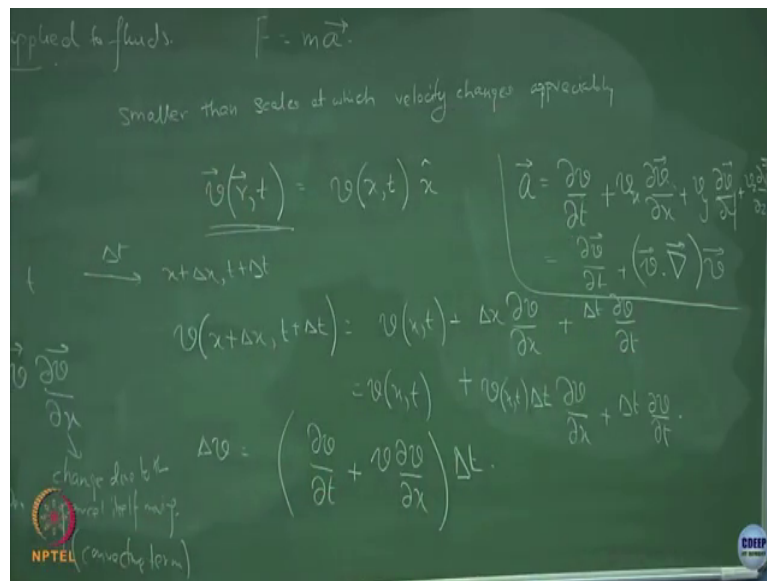 applied to fluids. F = m\vec{a}.
smaller than scales at which velocity changes appreciably
\vec{v}(\vec{r}, t) = v(x, t) \hat{x}
\vec{a} = ∂v/∂t + v_x ∂\vec{v}/∂x + v_y ∂\vec{v}/∂y + v_z ∂\vec{v}/∂z
= ∂\vec{v}/∂t + (\vec{v}.\vec{∇})\vec{v}
t \xrightarrow{Δt} x+Δx, t+Δt
v(x+Δx, t+Δt) = v(x,t) + Δx ∂v/∂x + Δt ∂v/∂t
= v(x,t) + v(x,t)Δt ∂v/∂x + Δt ∂v/∂t.
\vec{v} ∂\vec{v}/∂x
Δv = (∂v/∂t + v ∂v/∂x) Δt.
change due to the
itself moving.
(convective term)
NPTEL
CDEEP
IIT BOMBAY